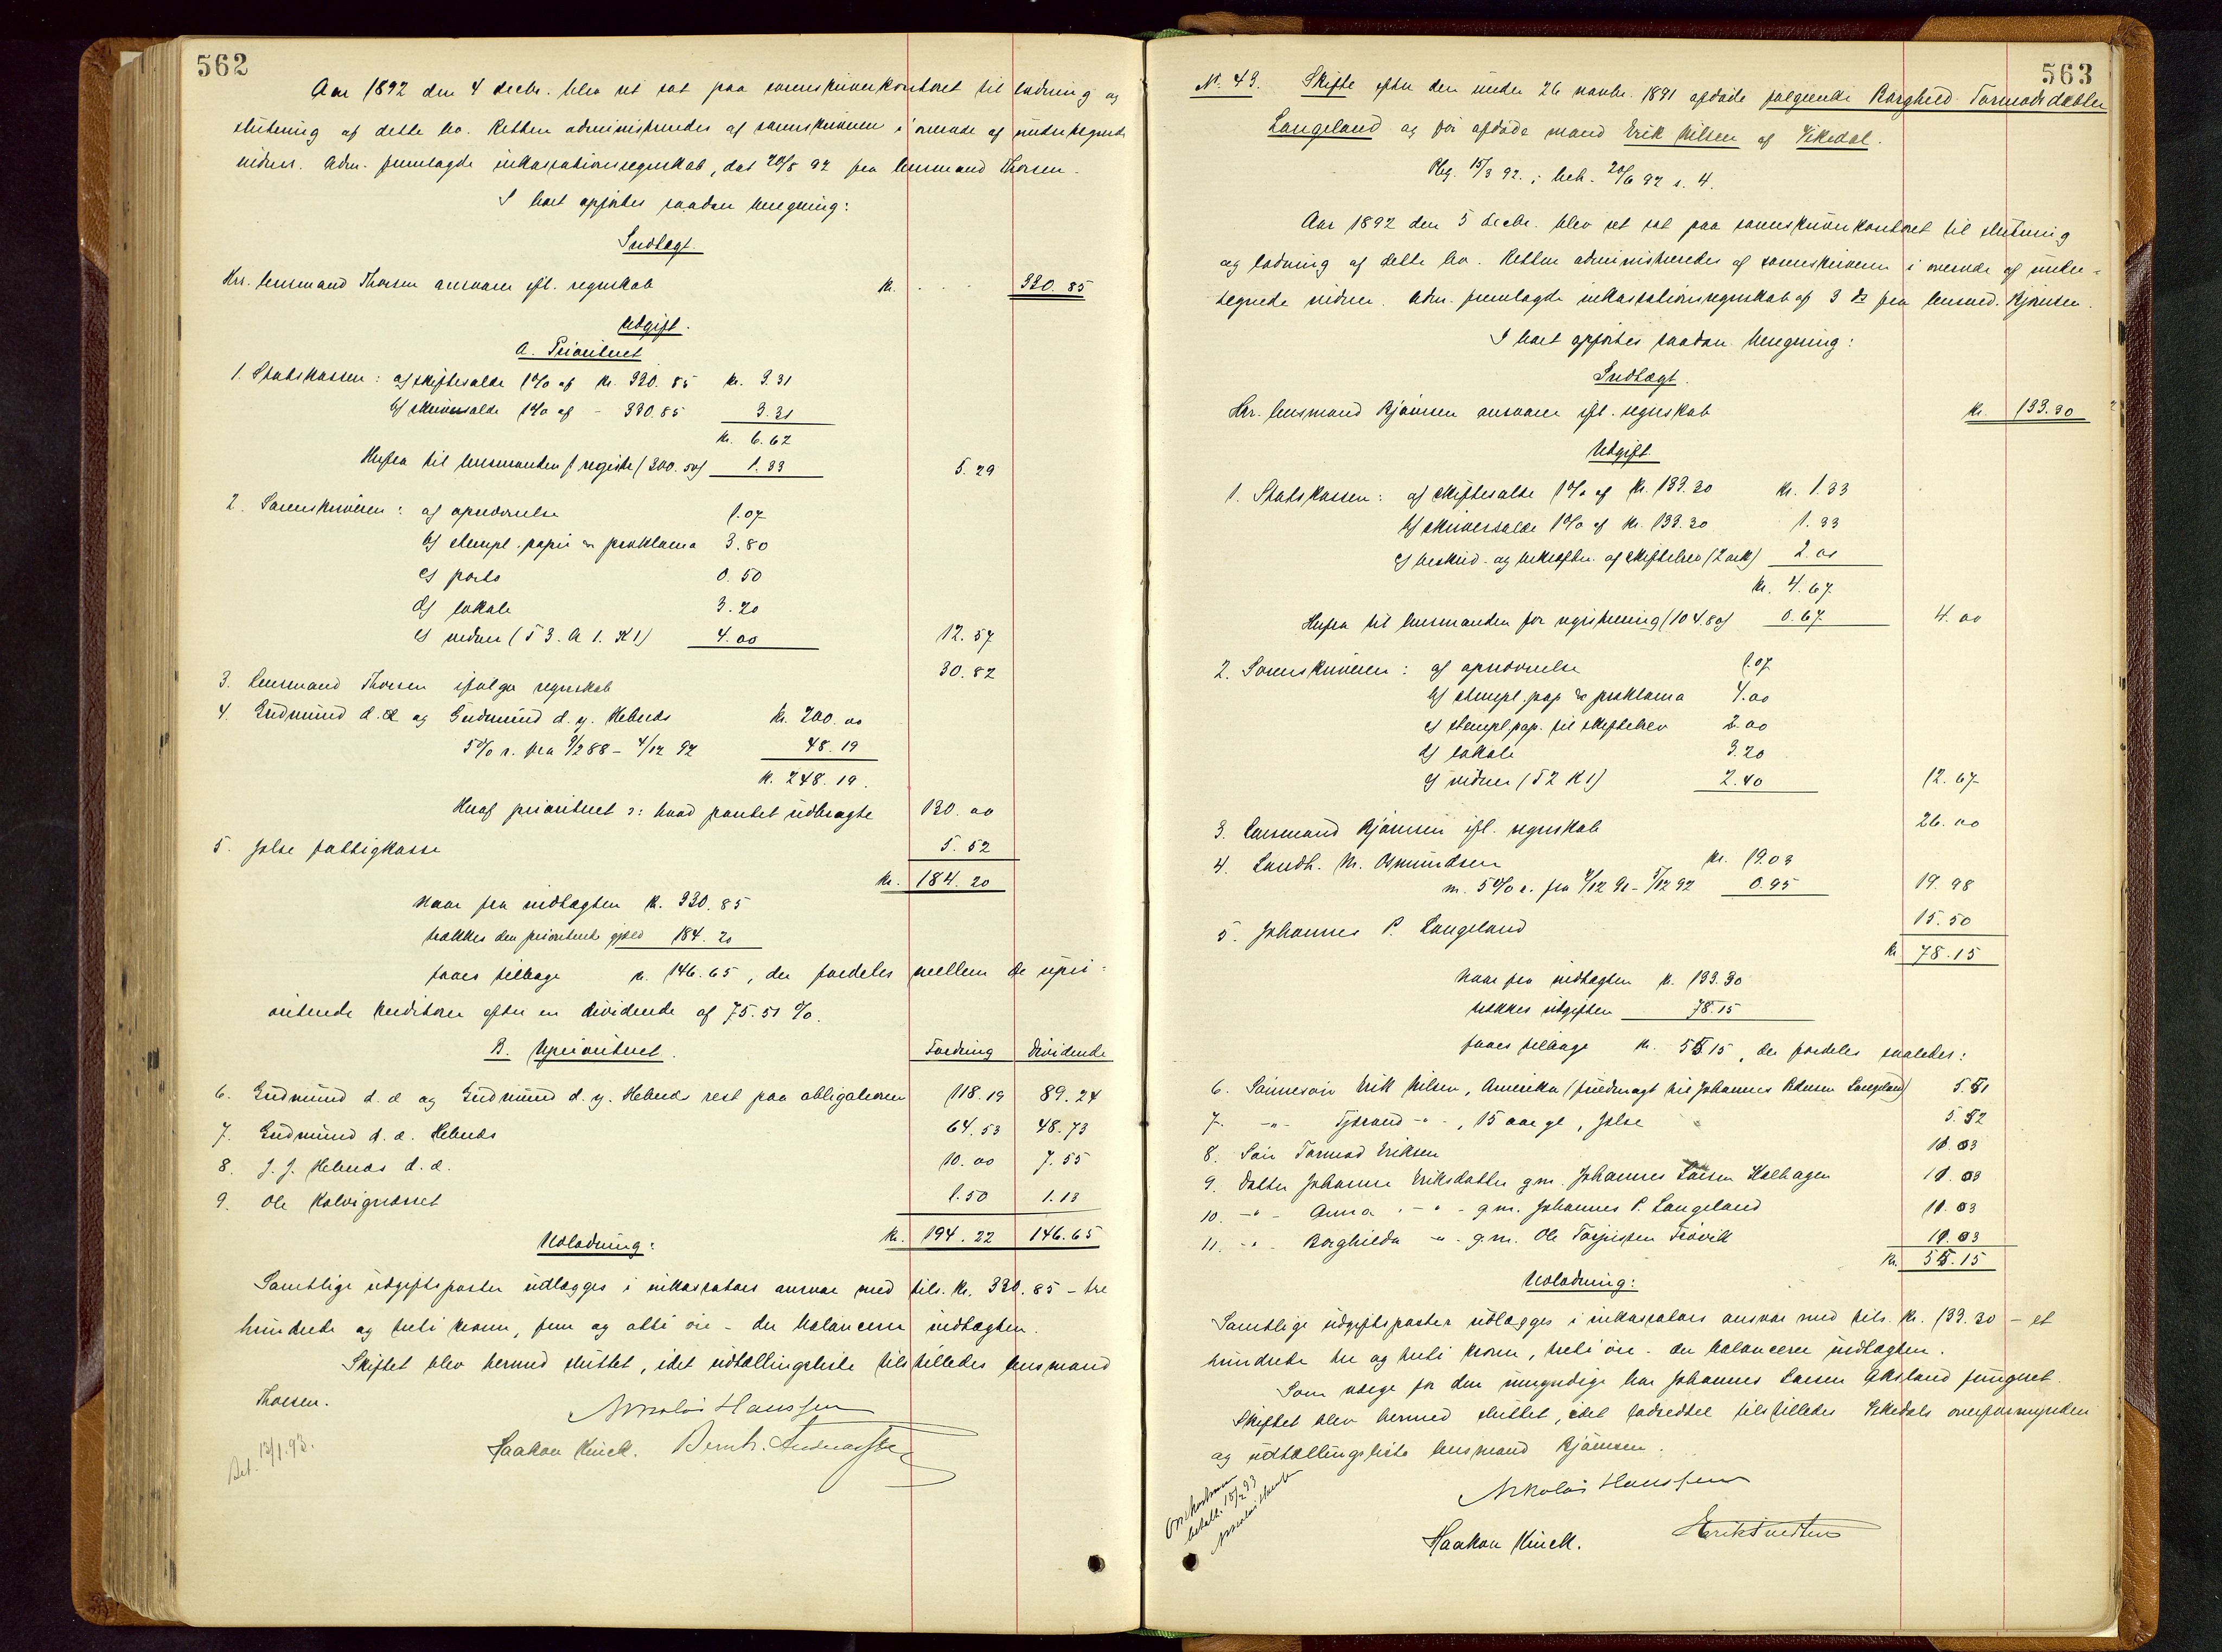 562
Aar 1892 den 4 decbr. blev ret sat paa sorenskriverkontoret til lodning og
slutning af dette bo. Retten administreredes af sorenskriveren i overvær af undertegnede
vidner. Adm. fremlagde inkassationsregnskab, dat 20/8 92 fra lensmand Thorsen.
I boet opførtes saadan beregning:
Indtægt.
Hr. lensmand Thorsen ansvarer ifl. regnskab kr. 330.85
Udgift.
A. Prioriteret
1. Statskassen: a) skiftesalde 1% af kr. 330.85 kr. 3.31
b) skriversalde 1% af - 330.85 3.31
kr. 6.62
Herfra til lensmanden f. registr (300.50) 1.33 5.29
2. Sorenskriveren: a) opnævnelse 1.07
b) stempl. papir & proklama 3.80
c) porto 0.50
d) lokale 3.20
e) vidner (T 3. A 1. K 1) 4.00 12.57
3. Lensmand Thorsen ifølge regnskab 30.82
4. Gudmund d.æ og Gudmund d.y. Hebnes kr. 200.00
5% r. fra 9/2 88 - 4/12 92 48.19
kr. 248.19.
Heraf prioriteret ɔ: hvad pantet udbragte 130.00
5. Jelse fattigkasse 5.52
kr. 184.20
Naar fra indtægten kr. 330.85
trækkes den prioriterte gjæld 184.20
faaes tilbage kr. 146.65, der fordeles mellem de upri-
oriterede kreditorer efter en dividende af 75.51 %.
B. Uprioriteret. Fordring Dividende
6. Gudmund d.æ og Gudmund d.y. Hebnes rest paa obligationen 118.19 89.24
7. Gudmund d.æ. Hebnes 64.53 48.73
8. J. J. Hebnes d.æ. 10.00 7.55
9. Ole Kolvignæsset 1.50 1.13
Udlodning: kr. 194.22 146.65
Samtlige udgiftsposter udlægges i inkassators ansvar med tils. kr. 330.85 - tre
hundrede og treti kroner, fem og otti øre - der balancerer indtægten.
Skiftet blev hermed sluttet, idet udtællingsliste tilstilledes lensmand
Thorsen.
Nikolai Hanssen
Haakon Kinck. Bernh.
Bet. 13/1.93.
563
N. 43. Skifte efter den under 26 novbr. 1891 afdøde følgeenke Borghild Tormodsdatter
Langeland og før afdøde mand Erik Nilsen af Vikedal.
Reg. 15/3 92.; beh. 20/6 92 s. 4.
Aar 1892 den 5 decbr. blev ret sat paa sorenskriverkontoret til slutning
og lodning af dette bo. Retten administreredes af sorenskriveren i overvær af under-
tegnede vidner. Adm. fremlagde inkassationsregnskab af 3 ds fra lensmd. Bjørnsen.
I boet opførtes saadan beregning:
Indtægt.
Hr. lensmand Bjørnsen ansvarer ifl. regnskab kr. 133.30
Udgift.
1. Statskassen: a) skiftesalde 1% af kr. 133.30 kr. 1.33
b) skriversalde 1% af kr. 133.30 1.33
c) beskriv. og bekræftn. af skiftebrev (2 ark) 2.00
kr. 4.67
Herfra til lensmanden for registrering (104.80) 0.67 4.00
2. Sorenskriveren: a) opnævnelse 1.07
b) stempl. pap & proklama 4.00
c) stempl. pap. til skiftebrev 2.00
d) lokale 3.20
e) vidner (T 2 K 1) 2.40 12.67
3. Lensmand Bjørnsen ifl. regnskab 26.00
4. Landh. M. Osmundsen kr. 19.03
m. 5% r. fra 4/12 91 - 5/12 92 0.95 19.98
5. Johannes P. Langeland 15.50
kr. 78.15
Naar fra indtægten kr. 133.30
trækkes udgiften 78.15
faaes tilbage kr. 55.15, der fordeles saaledes:
6. Sønnesøn Erik Nilsen, Amerika (fuldmagt til Johannes Pedersen Langeland) 5.51
7. -"- Tjeraand -"-, 15 aar gl, Jelse 5.52
8. Søn Tormod Eriksen 11.03
9. Datter Johanne Eriksdatter g.m. Johannes Larsen Holhagen 11.03
10. -"- Anna -"- g.m. Johannes P. Langeland 11.03
11. -"- Borghilda -"- g.m. Ole Torjussen 11.03
kr. 55.15
Udlodning:
Samtlige udgiftsposter udlægges i inkassators ansvar med tils. kr. 133.30 - et
hundrede tre og treti kroner, treti øre - der balancerer indtægten.
Som værge for den umyndige har Johannes Larsen Øksland fungeret.
Skiftet blev hermed sluttet, idet lodseddel tilstilledes Vikedals overformynderi
og udtællingsliste lensmand Bjørnsen.
Nikolai Hanssen
Haakon Kinck. Erik
Omkostninger
betalt. 15/2 93